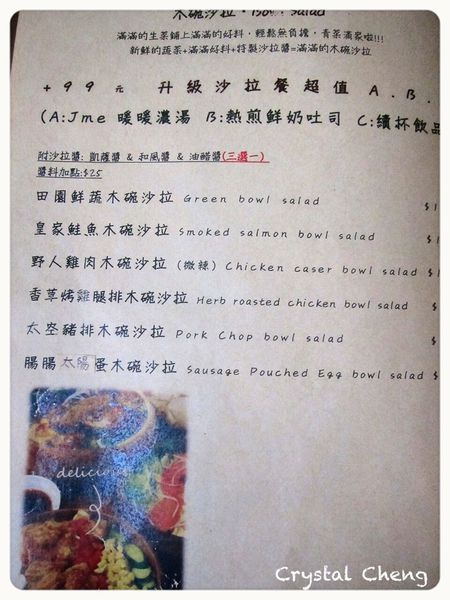 木碗沙拉・Bowl salad
滿滿的生菜鋪上滿滿的好料,輕鬆無負擔,青菜滿家啦!!!
新鮮的蔬菜+滿滿好料+特製沙拉醬=滿滿的木碗沙拉
+99元 升級沙拉餐超值 A.B.
(A:Jme 暖暖濃湯 B:熱煎鮮奶吐司 C:續杯飲品
附沙拉醬: 凱薩醬 & 和風醬 & 油醋醬(三選一)
醬料加點:$25
田園鮮蔬木碗沙拉 Green bowl salad $1
皇家鮭魚木碗沙拉 Smoked salmon bowl salad $1
野人雞肉木碗沙拉 (微辣) Chicken caser bowl salad $1
香草烤雞腿排木碗沙拉 Herb roasted chicken bowl salad $
太空豬排木碗沙拉 Pork Chop bowl salad $
腸腸太陽蛋木碗沙拉 Sausage Pouched Egg bowl salad $
delicious
Crystal Cheng